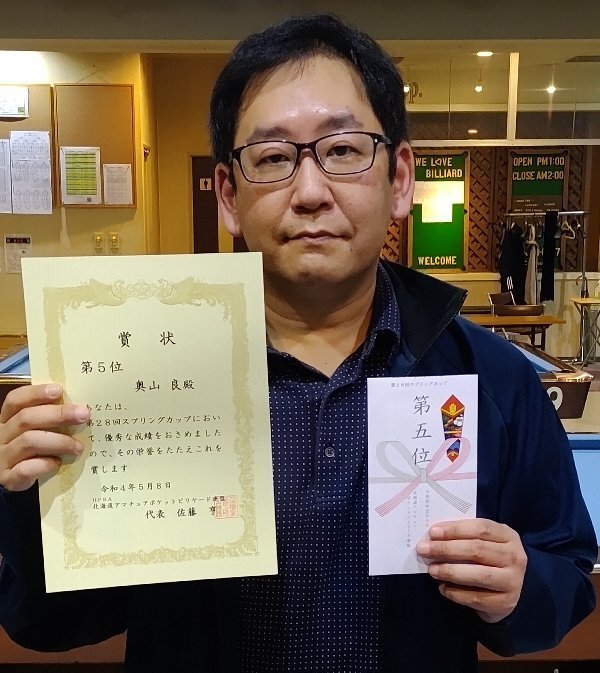 WE LOVE
BILLIARD
WELCOME
OPEN PM1:00
CLOSE AM2:00
賞状
第5位
奥山 良殿
あなたは、
第28回スプリングカップにおい
て、優秀な成績をおさめました
ので、その栄誉をたたえこれを
賞します
令和4年5月8日
HPBA
北海道アマチュアポケットビリヤード連盟
代表 佐藤 亨
第28回スプリングカップ
第五位